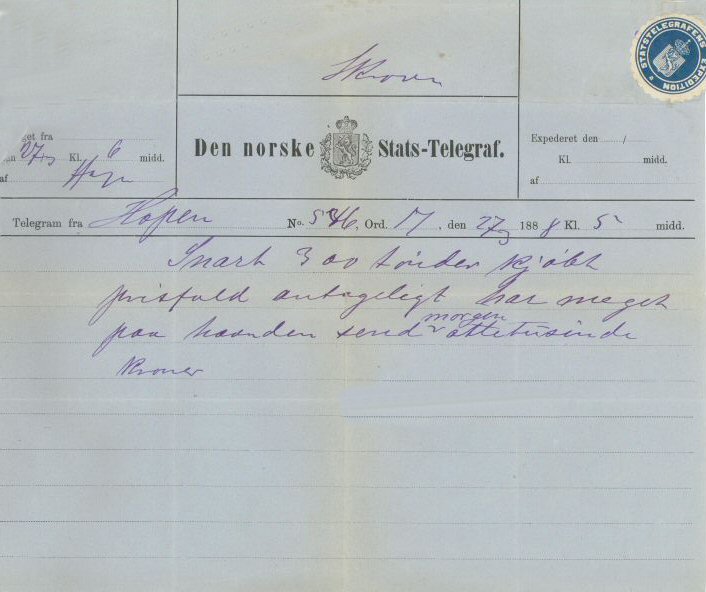 Skroven
STATSTELEGRAFENS EXPEDITION
get fra
27/3 Kl. 6 midd.
af
Den norske Stats-Telegraf.
Expederet den /
Kl. midd.
af
Telegram fra Hopen No. 546, Ord. 17, den 27/3 1888 Kl. 5 midd.
Snart 300 tönder kjöbt
prisfald antageligt har meget
paa haanden send morgen ottetusinde
Kroner